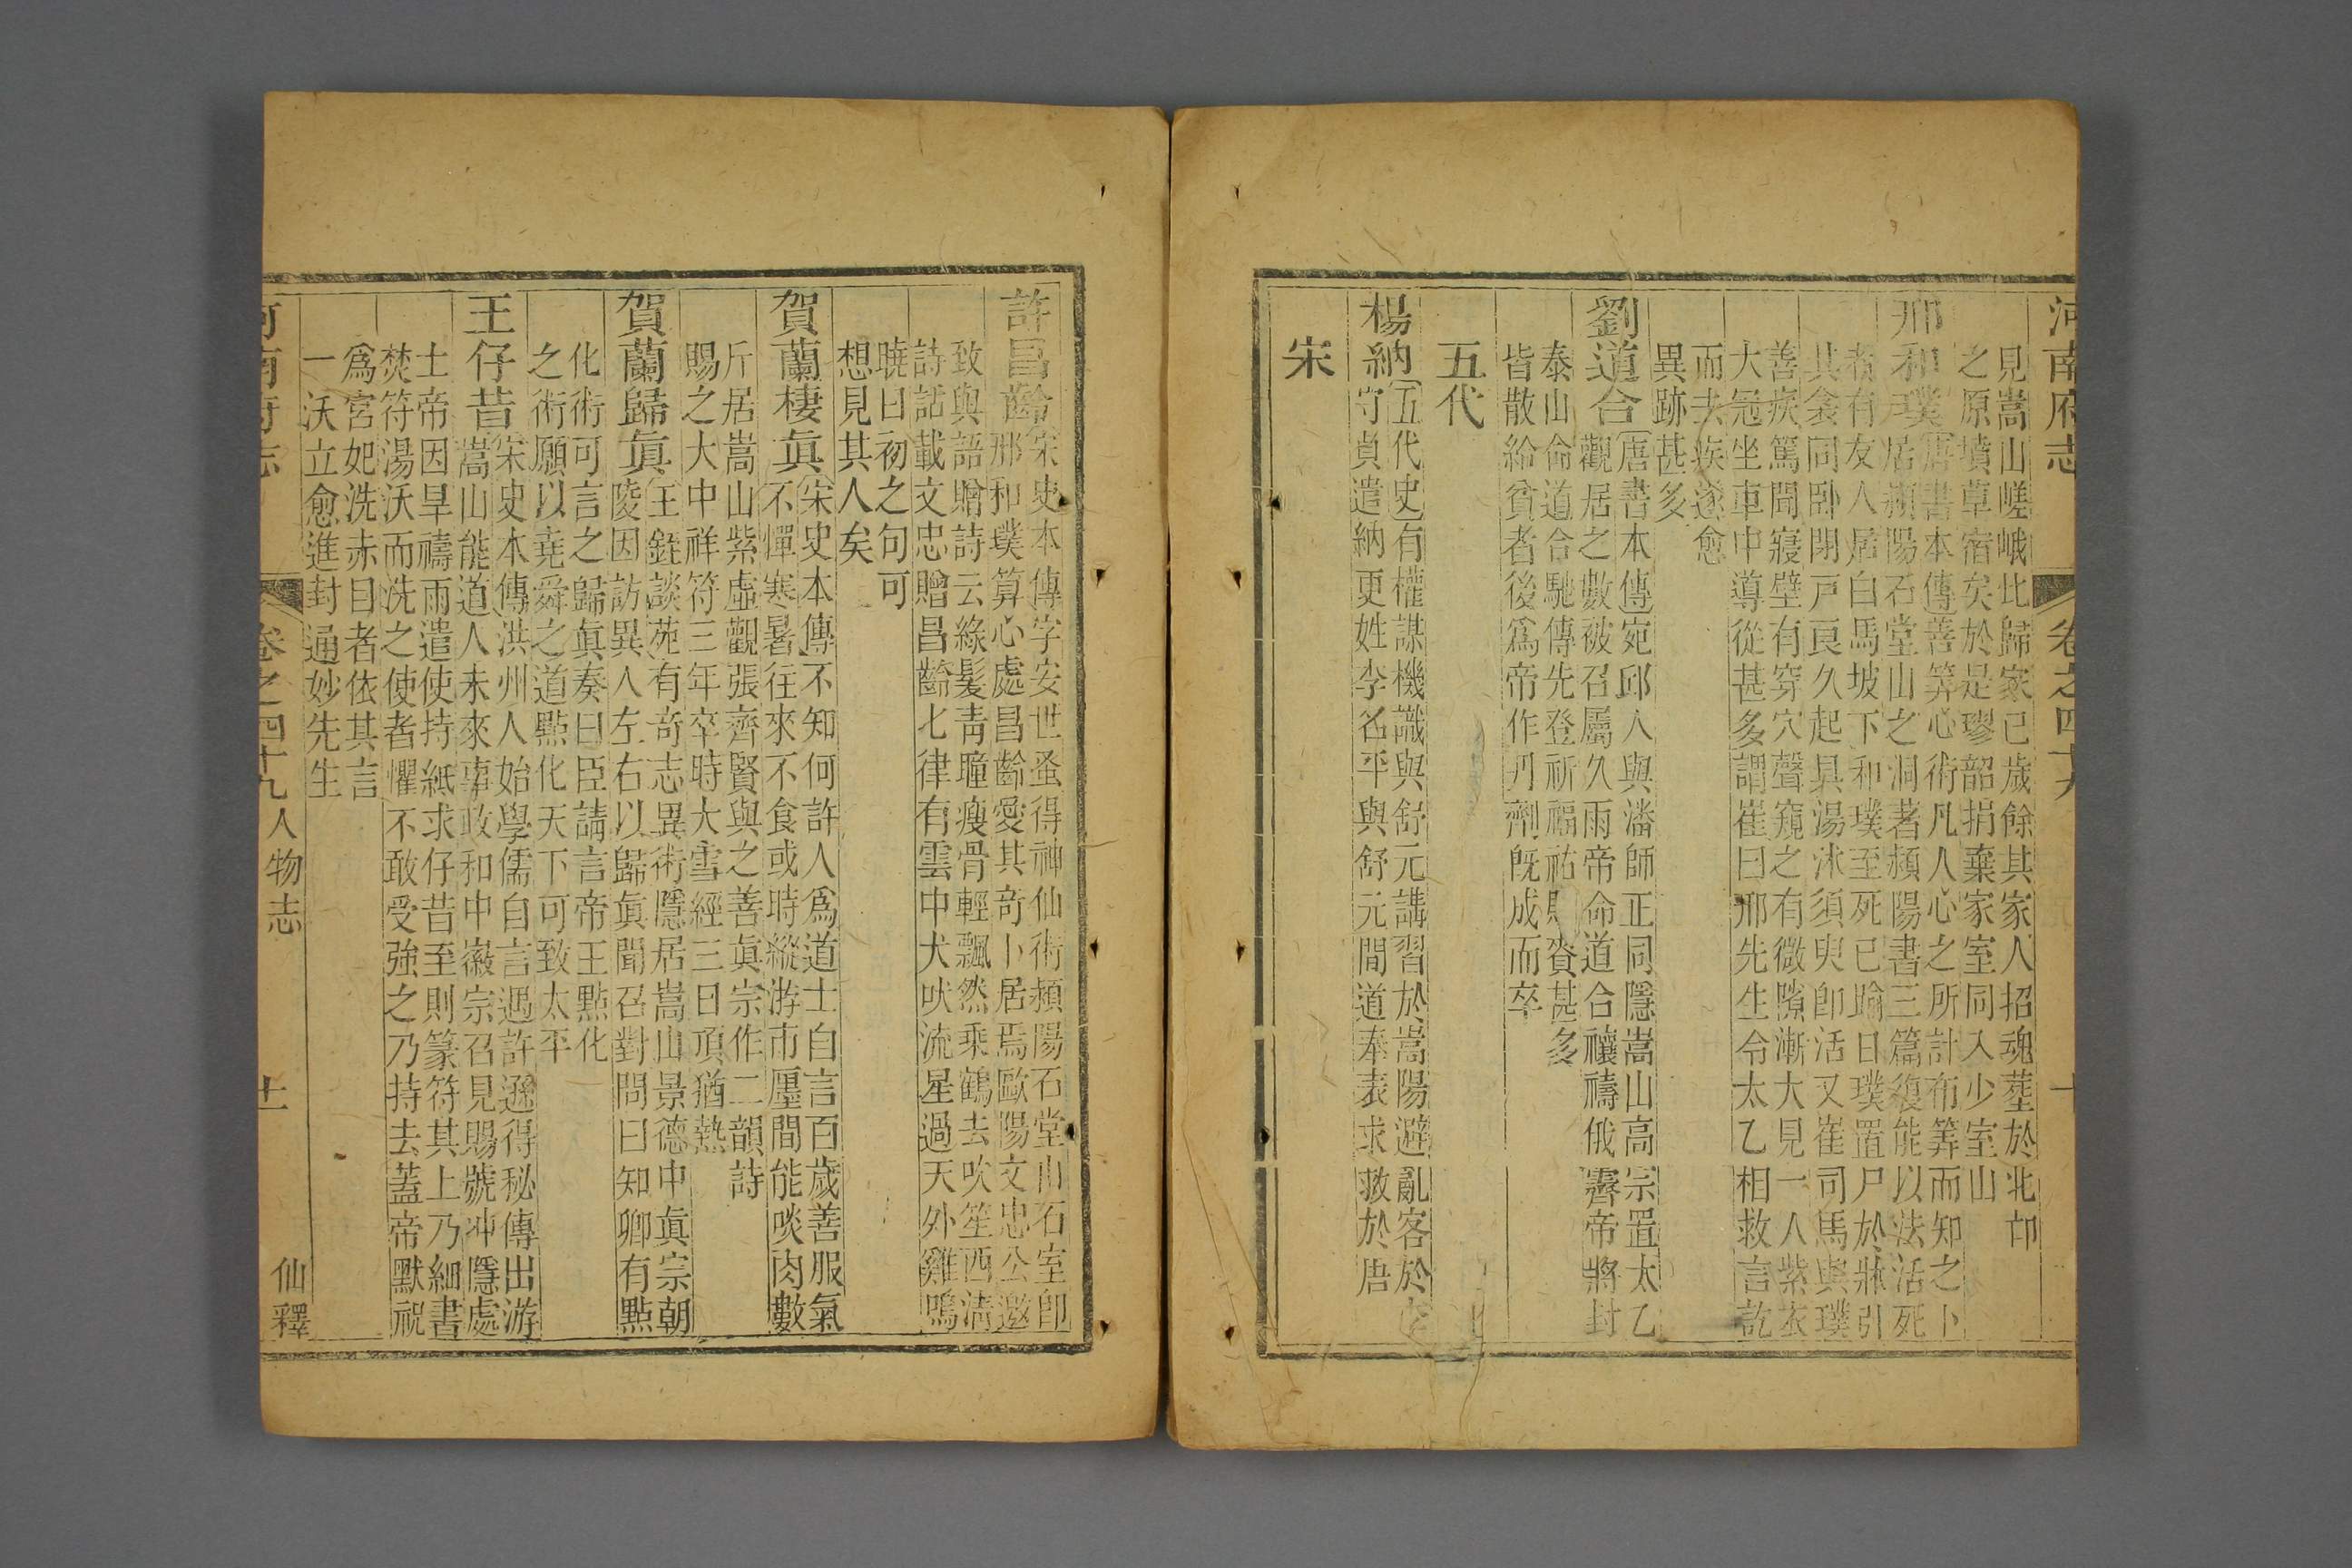 河南府志
卷之四十九
十
見嵩山嵯峨北歸家已歲餘其家人招魂塟於北邙
之原墳草宿矣於是璆韶捐棄家室同入少室山
邢和璞
唐書本傳善筭心術凡人心之所計布筭而知之卜
居潁陽石堂山之洞著潁陽書三篇復能以法活死
者有友人居白馬坡下和璞至死已踰日璞置尸於牀引
其衾同臥閉戸良久起具湯沐須臾卽活又崔司馬與璞
善疾篤聞寢壁有穿穴聲窺之有微隙漸大見一人紫衣
大冠坐車中導從甚多謂崔曰邢先生令太乙相救言訖
而去疾遂愈
異跡甚多
劉道合
唐書本傳宛邱人與潘師正同隱嵩山高宗置太乙
觀居之數被召屬久雨帝命道合禳禱俄霽帝將封
泰山命道合馳傳先登祈福祐賚甚多
皆散給貧者後爲帝作丹劑旣成而卒
五代
楊納
五代史有權謀機識與舒元講習於嵩陽避亂客於
守貞遣納更姓李名平與舒元間道奉表求救於唐
宋
許昌齡
宋史本傳字安世蚤得神仙術潁陽石堂山石室卽
邢和璞算心處昌齡愛其奇卜居焉歐陽文忠公邀
致與語贈詩云綠髮靑瞳瘦骨輕飄然乘鶴去吹笙西淸
詩話載文忠贈昌齡七律有雲中犬吠流星過天外雞鳴
曉日初之句可
想見其人矣
賀蘭棲眞
宋史本傳不知何許人爲道士自言百歲善服氣
不憚寒暑往來不食或時縱游市㕓間能啖肉數
斤居嵩山紫虛觀張齊賢與之善眞宗作二韻詩
賜之大中祥符三年卒時大雪經三日頂猶熱
賀蘭歸眞
王銍談苑有奇志異術隱居嵩山景德中眞宗朝
陵因訪異人左右以歸眞聞召對問曰知卿有點
化術可言之歸眞奏曰臣請言帝王點化
之術願以堯舜之道點化天下可致太平
王仔昔
宋史本傳洪州人始學儒自言遇許遜得秘傳出游
嵩山能道人未來事政和中徽宗召見賜號冲隱處
士帝因旱禱雨遣使持紙求仔昔至則篆符其上乃細書
焚符湯沃而洗之使者懼不敢受強之乃持去蓋帝默祝
爲宮妃洗赤目者依其言
一沃立愈進封通妙先生
河南府志
卷之四十九人物志
十一
仙釋